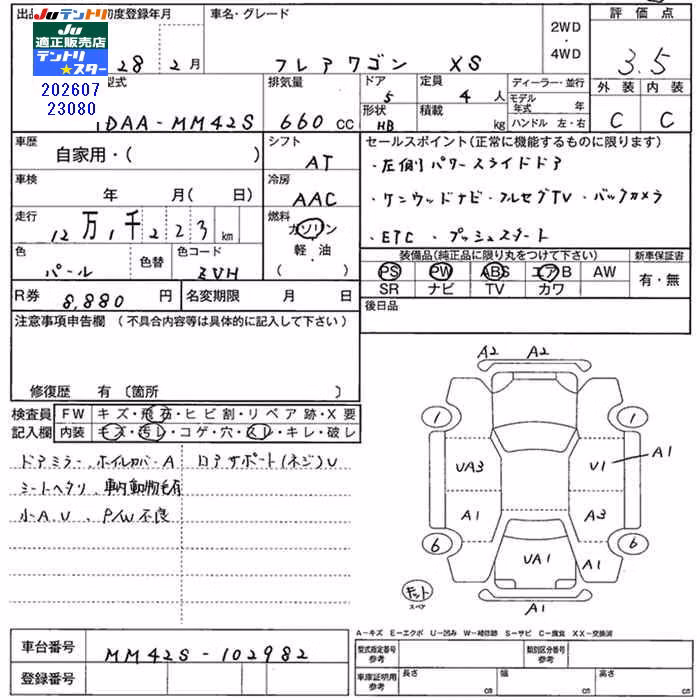 Juテントリ
Ju
適正販売店
テントリ
スター
202607
23080
初度登録年月
28 2月
車名・グレード
フレアワゴン XS
2WD
・
4WD
評価点
3.5
外装 内装
C C
型式
DAA-MM42S
排気量
660 cc
ドア
5
形状
HB
定員
4人
積載
kg
ディーラー・並行
モデル年式 年
ハンドル 左・右
車歴
自家用・( )
シフト
AT
車検
年 月( 日)
冷房
AAC
走行
12万1千223km
燃料
ガソリン
軽・油
( )
色
パール
色替
色コード
ZVH
セールスポイント(正常に機能するものに限ります)
・左側パワースライドドア
・ケンウッドナビ・フルセグTV・バックカメラ
・ETC ・プッシュスタート
装備品(純正品に限り丸をつけて下さい)
PS PW ABS エアB AW
SR ナビ TV カワ
新車保証書
有・無
R券 8,880円
名変期限 月 日
後日品
注意事項申告欄(不具合内容等は具体的に記入して下さい)
修復歴 有〔箇所 〕
検査員記入欄
FW キズ・飛石・ヒビ割・リペア跡・X要
内装 キズ・汚レ・コゲ・穴・スレ・キレ・破レ
ドアミラー、ホイルカバーA
ロアサポート(ネジ)U
シートヘタリ、車内動物毛有
小A、U、P/W不良
A2 A2
1 1
UA3 U1 A1
A1 A3
6 6
UA1 A1
キット
スペア
A1
A-キズ E-エクボ U-凹み W-補修跡 S-サビ C-腐食 XX-交換済
車台番号
MM42S-102982
登録番号
型式指定番号
参考
類別区分番号
参考
車庫証明用
参考
長さ cm
幅 cm
高さ cm